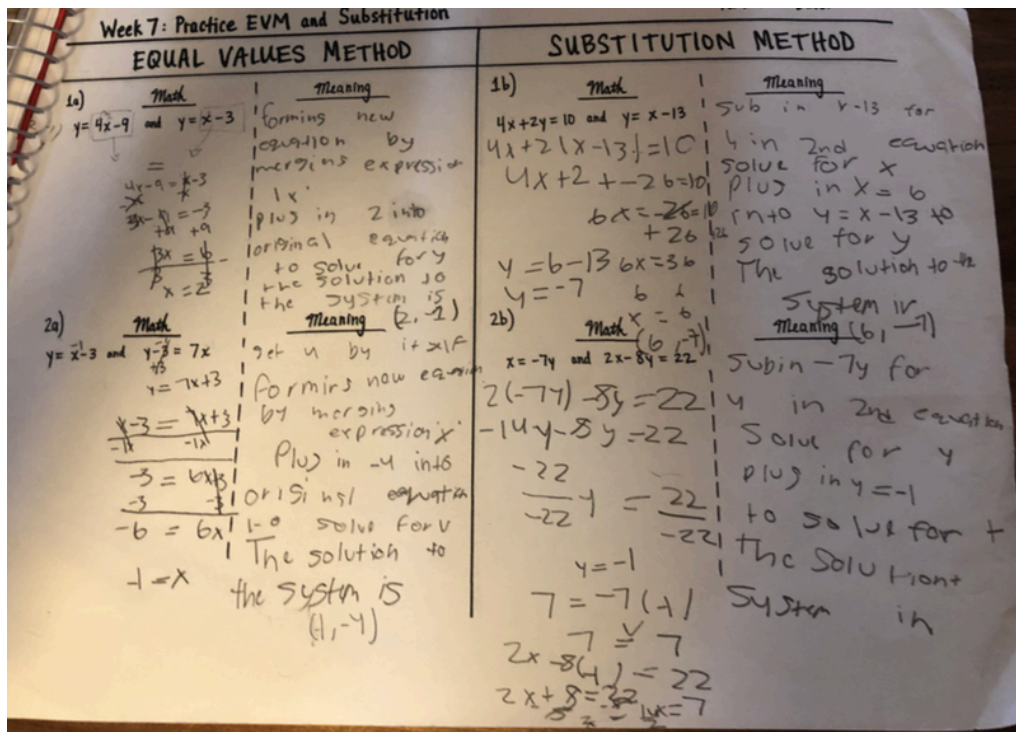 Week 7: Practice EVM and Substitution
EQUAL VALUES METHOD
1a)
Math
Meaning
y= 4x-9 and y= x-3
=
4x-9 = x-3
3x-9 = -3
+9 +9
3x = 6
3 3
x = 2
forming new
equation by
merging expression
plug in 2 into
original equation
to solve for y
the solution to
the system is
(2, -1)
2a)
Math
Meaning
y= x-3 and y-3 = 7x
+3
y= 7x+3
x-3 = 7x+3
-1x -1x
-3 = 6x+3
-3 -3
-6 = 6x
-1 = x
get y by itself
formirs now equation
by merging
expression
Plug in -4 into
original equation
to solve for y
The solution to
the system is
(-1, -4)
SUBSTITUTION METHOD
1b)
Math
Meaning
4x+2y=10 and y= x-13
4x+2(x-13)=10
4x+2+-26=10
6x=-26=10
+26
6x=36
6 6
x = 6
y=6-13
y=-7
(6, -7)
sub in x-13 for
y in 2nd equation
solve for x
Plug in x = 6
into y = x-13 to
solve for y
The solution to the
System is
(6, -7)
2b)
Math
Meaning
x= -7y and 2x-8y= 22
2(-7y) -8y=22
-14y-8y=22
-22
-22
y =
22
-22
y=-1
7 = -7(-1)
7 = 7
2x -8(-1) = 22
2x+8=22
x=7
Subin -7y for
y in 2nd equation
Solve for y
plug in y=-1
to solve for
the solution
System in